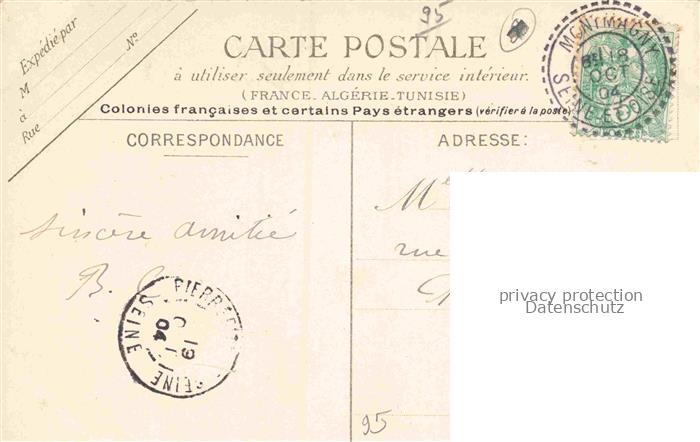 95
Expédié par
M
à
Rue
N°
CARTE POSTALE
à utiliser seulement dans le service intérieur.
(FRANCE-ALGÉRIE-TUNISIE)
Colonies françaises et certains Pays étrangers (vérifier à la poste)
MONTMAGNY
18
OCT
04
SEINE-ET-OISE
CORRESPONDANCE
ADRESSE:
sincère amitié
B.
M
rue
PIERREF
19
OCT
04
SEINE
SEINE
95
privacy protection
Datenschutz